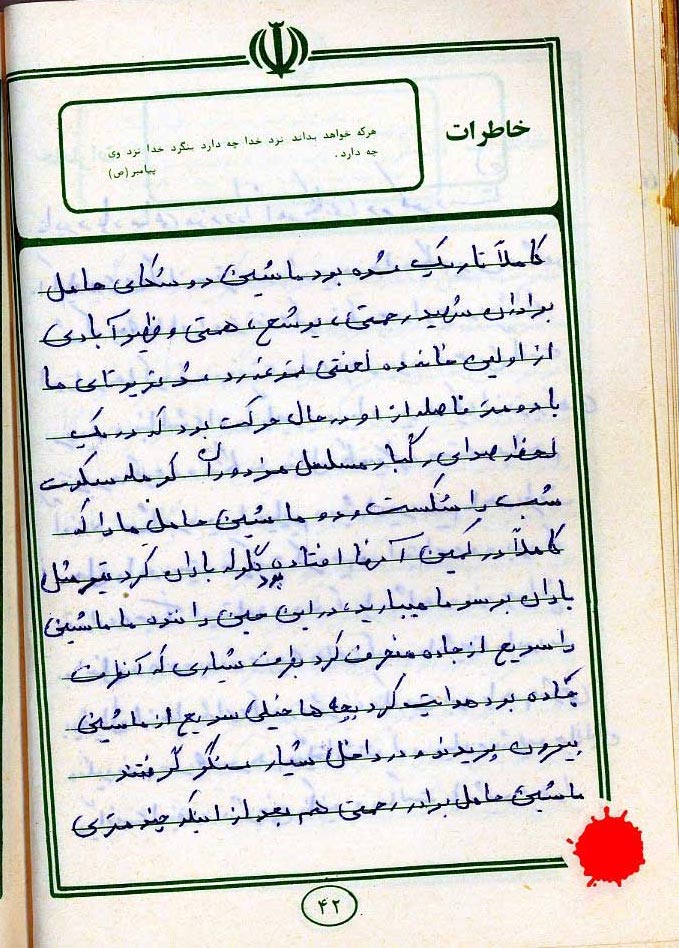 خاطرات
هرکه خواهد بداند نزد خدا چه دارد بنگرد خدا نزد وی
چه دارد.
پیامبر(ص)
کاملاً تاریک شده بود ماشین دوشکای حامل
برادران شهید رحمتی، یوشع، همتی و ظهیرآبادی
از اولین خانه ده لعنتی رد شد تویوتای ما
با دو متر فاصله از او در حال حرکت بود که در یک
لحظه صدای رگبار مسلسل مزدوران کومله سکوت
شب را شکست و دو ماشین حامل ما را که
کاملاً در کمین آنها افتاده بود گلوله باران کرد تیر مثل
باران بر سر ما میبارید، در این حین راننده ما ماشین
را سریع از جاده منحرف کرد بطرف شیاری که آنطرف
جاده بود هدایت کرد بچه ها خیلی سریع از ماشین
بیرون پریدند و در داخل شیار سنگر گرفتند
ماشین حامل برادر رحمتی هم بعد از اینکه چند متری
۴۲